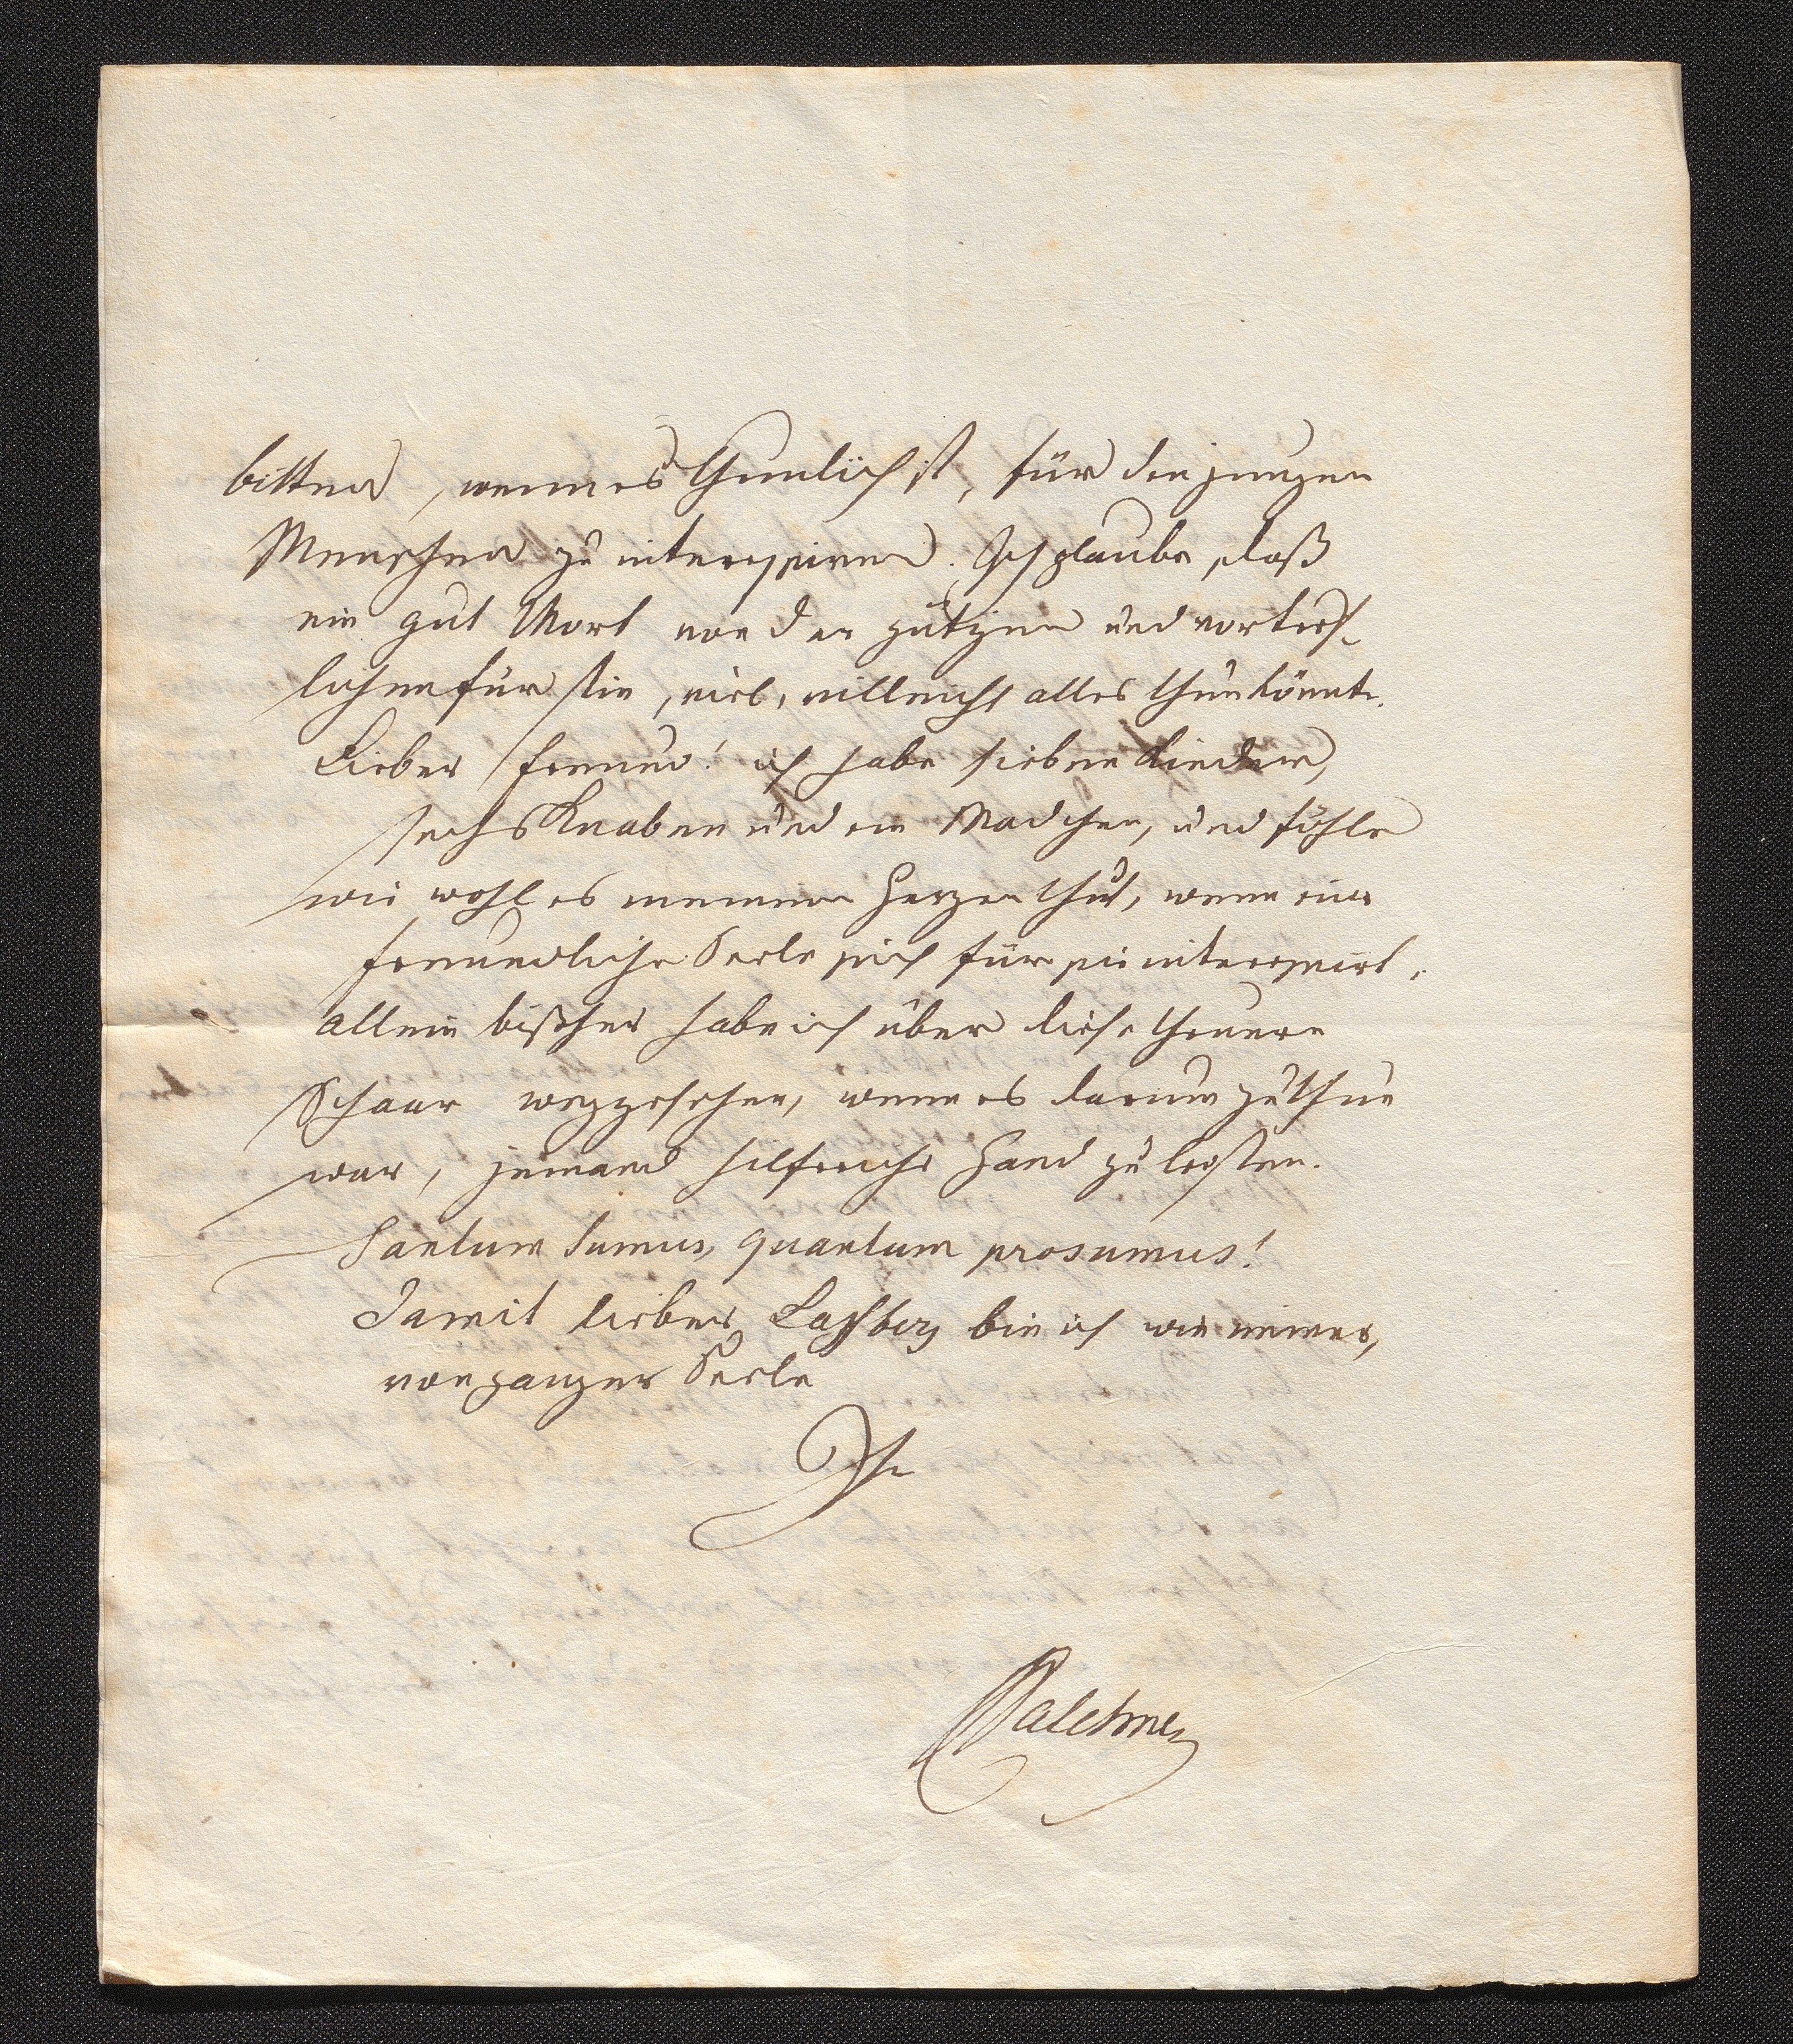 bitten, wenn es thunlich ist, für den jungen
Menschen zu interessiren. Ich glaube, daß
ein gut Wort von der gütigen und vortref-
lichen Fürstin, viel, villeicht alles thun könnte.
Lieber Freund! ich habe sieben Kinder,
sechs Knaben und ein Mädchen, und fühle
wie wohl es meinem Herzen thut, wenn eine
freundliche Seele sich für sie interessirt.
allein bißher habe ich über diese theuere
Schaar weggesehen, wenn es darum zu thun
war, jemand hilfreiche Hand zu leisten.
Tantum sumus, quantum prosumus!
Damit lieber Laßberg bin ich wie immer,
von ganzer Seele
Ihr